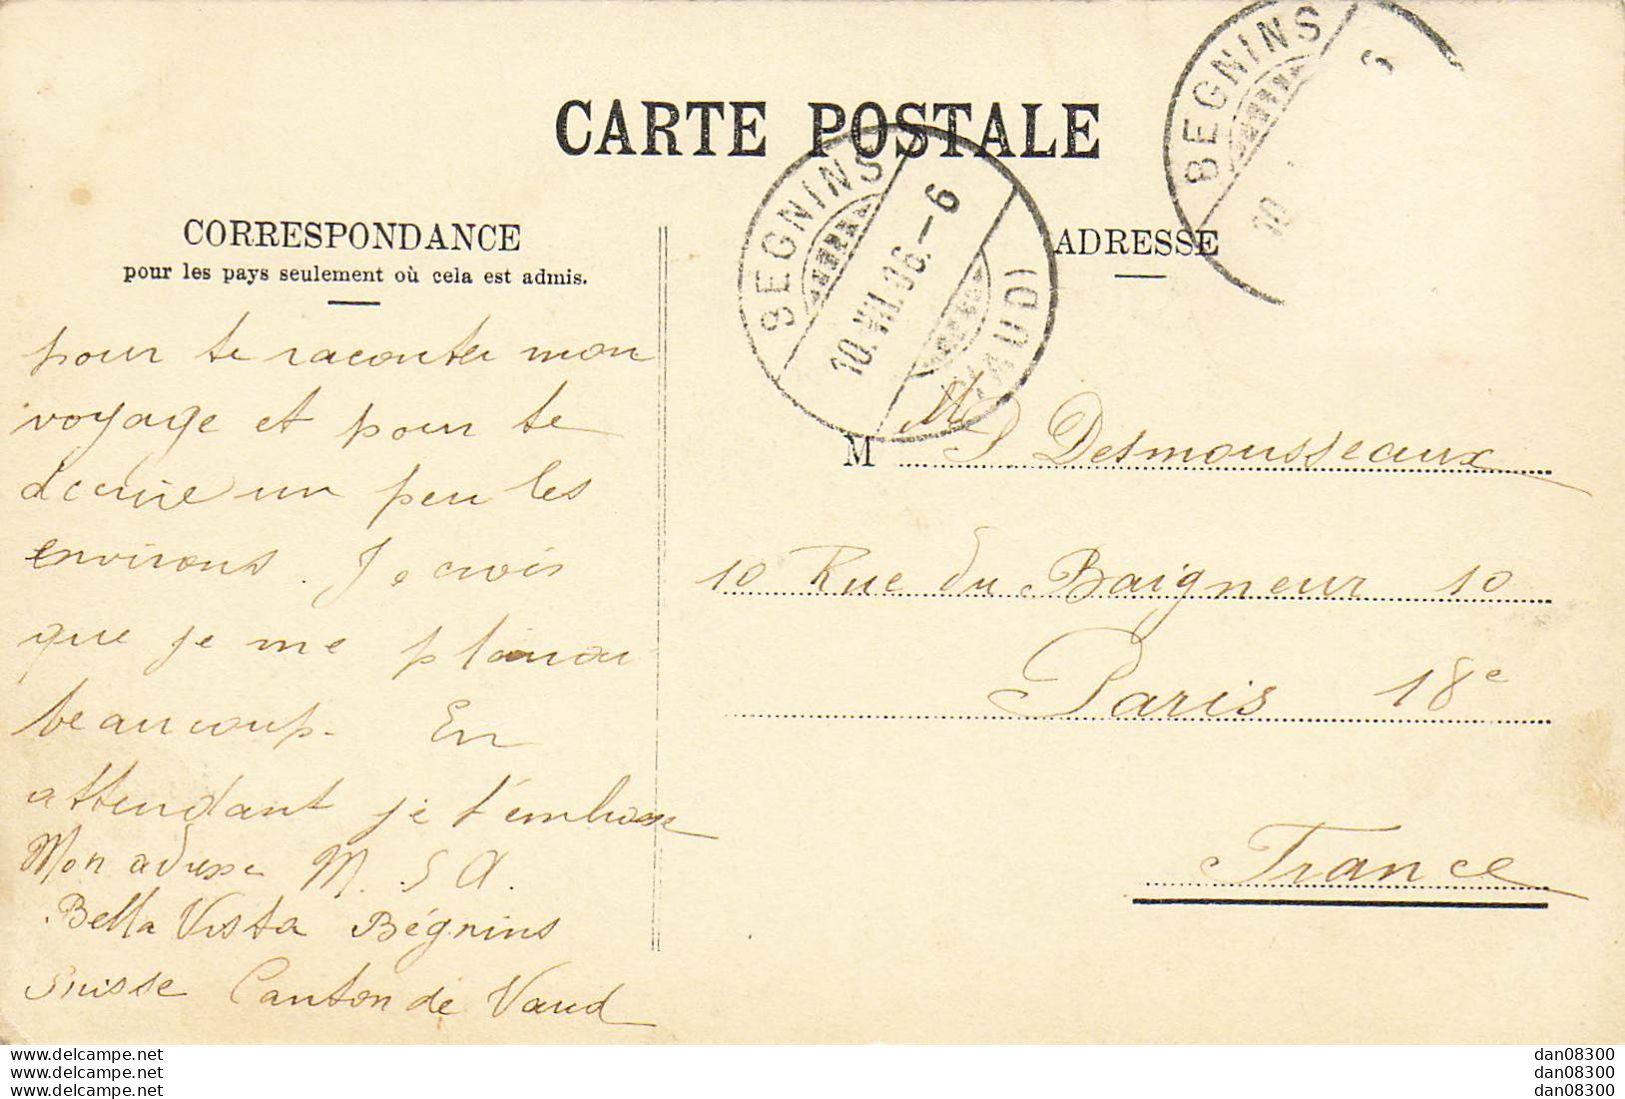 CARTE POSTALE
CORRESPONDANCE
pour les pays seulement où cela est admis.
ADRESSE
BEGNINS
10.VII.06.–6
(VAUD)
BEGNINS
10
6
pour te raconter mon
voyage et pour te
décrire un peu les
environs. Je crois
que je me plairai
beaucoup. En
attendant je t'embrasse
Mon adresse M. S A.
Bella Vista Bégnins
Suisse Canton de Vaud
M Desmousseaux
10 Rue du Baigneur 10
Paris 18e
France
www.delcampe.net
www.delcampe.net
www.delcampe.net
dan08300
dan08300
dan08300